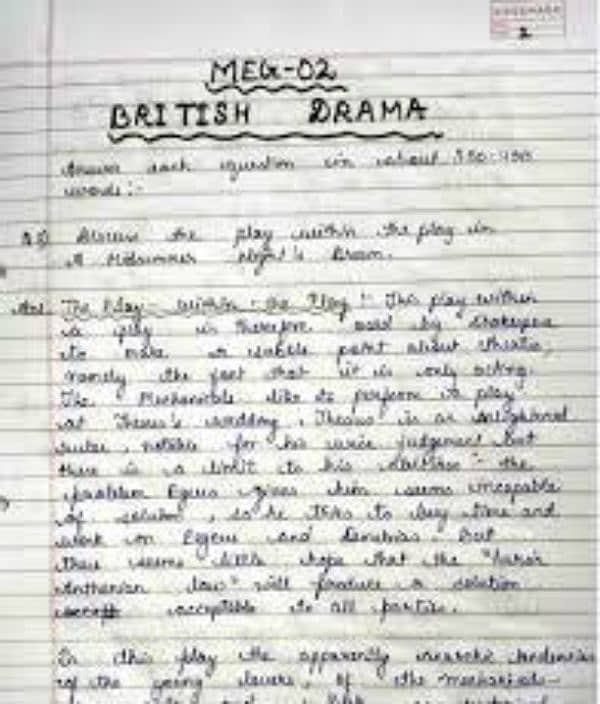 2
MEG-02
BRITISH DRAMA
Answer each question in about 350-450
words:-
Discuss the play within the play in
A Midsummer Night's Dream.
Ans. The Play-within-the Play :- This play within
a play is therefore used by Shakespeare
to make a subtle point about theatre,
namely the fact that it is only acting.
The Mechanicals like to perform a play
at Theseus's wedding. Theseus is an enlightened
ruler, notable for his wise judgement but
there is a limit to his abilities - the
problem Egeus gives him seems uncapable
of solution, so he tries to buy time and
work on Egeus and Demetrius. But
there seems little hope that the "harsh
Anthenian law" will produce a solution
acceptable to all parties.
In this play the apparently anarchic tendencies
of the young lovers, of the mechanicals-